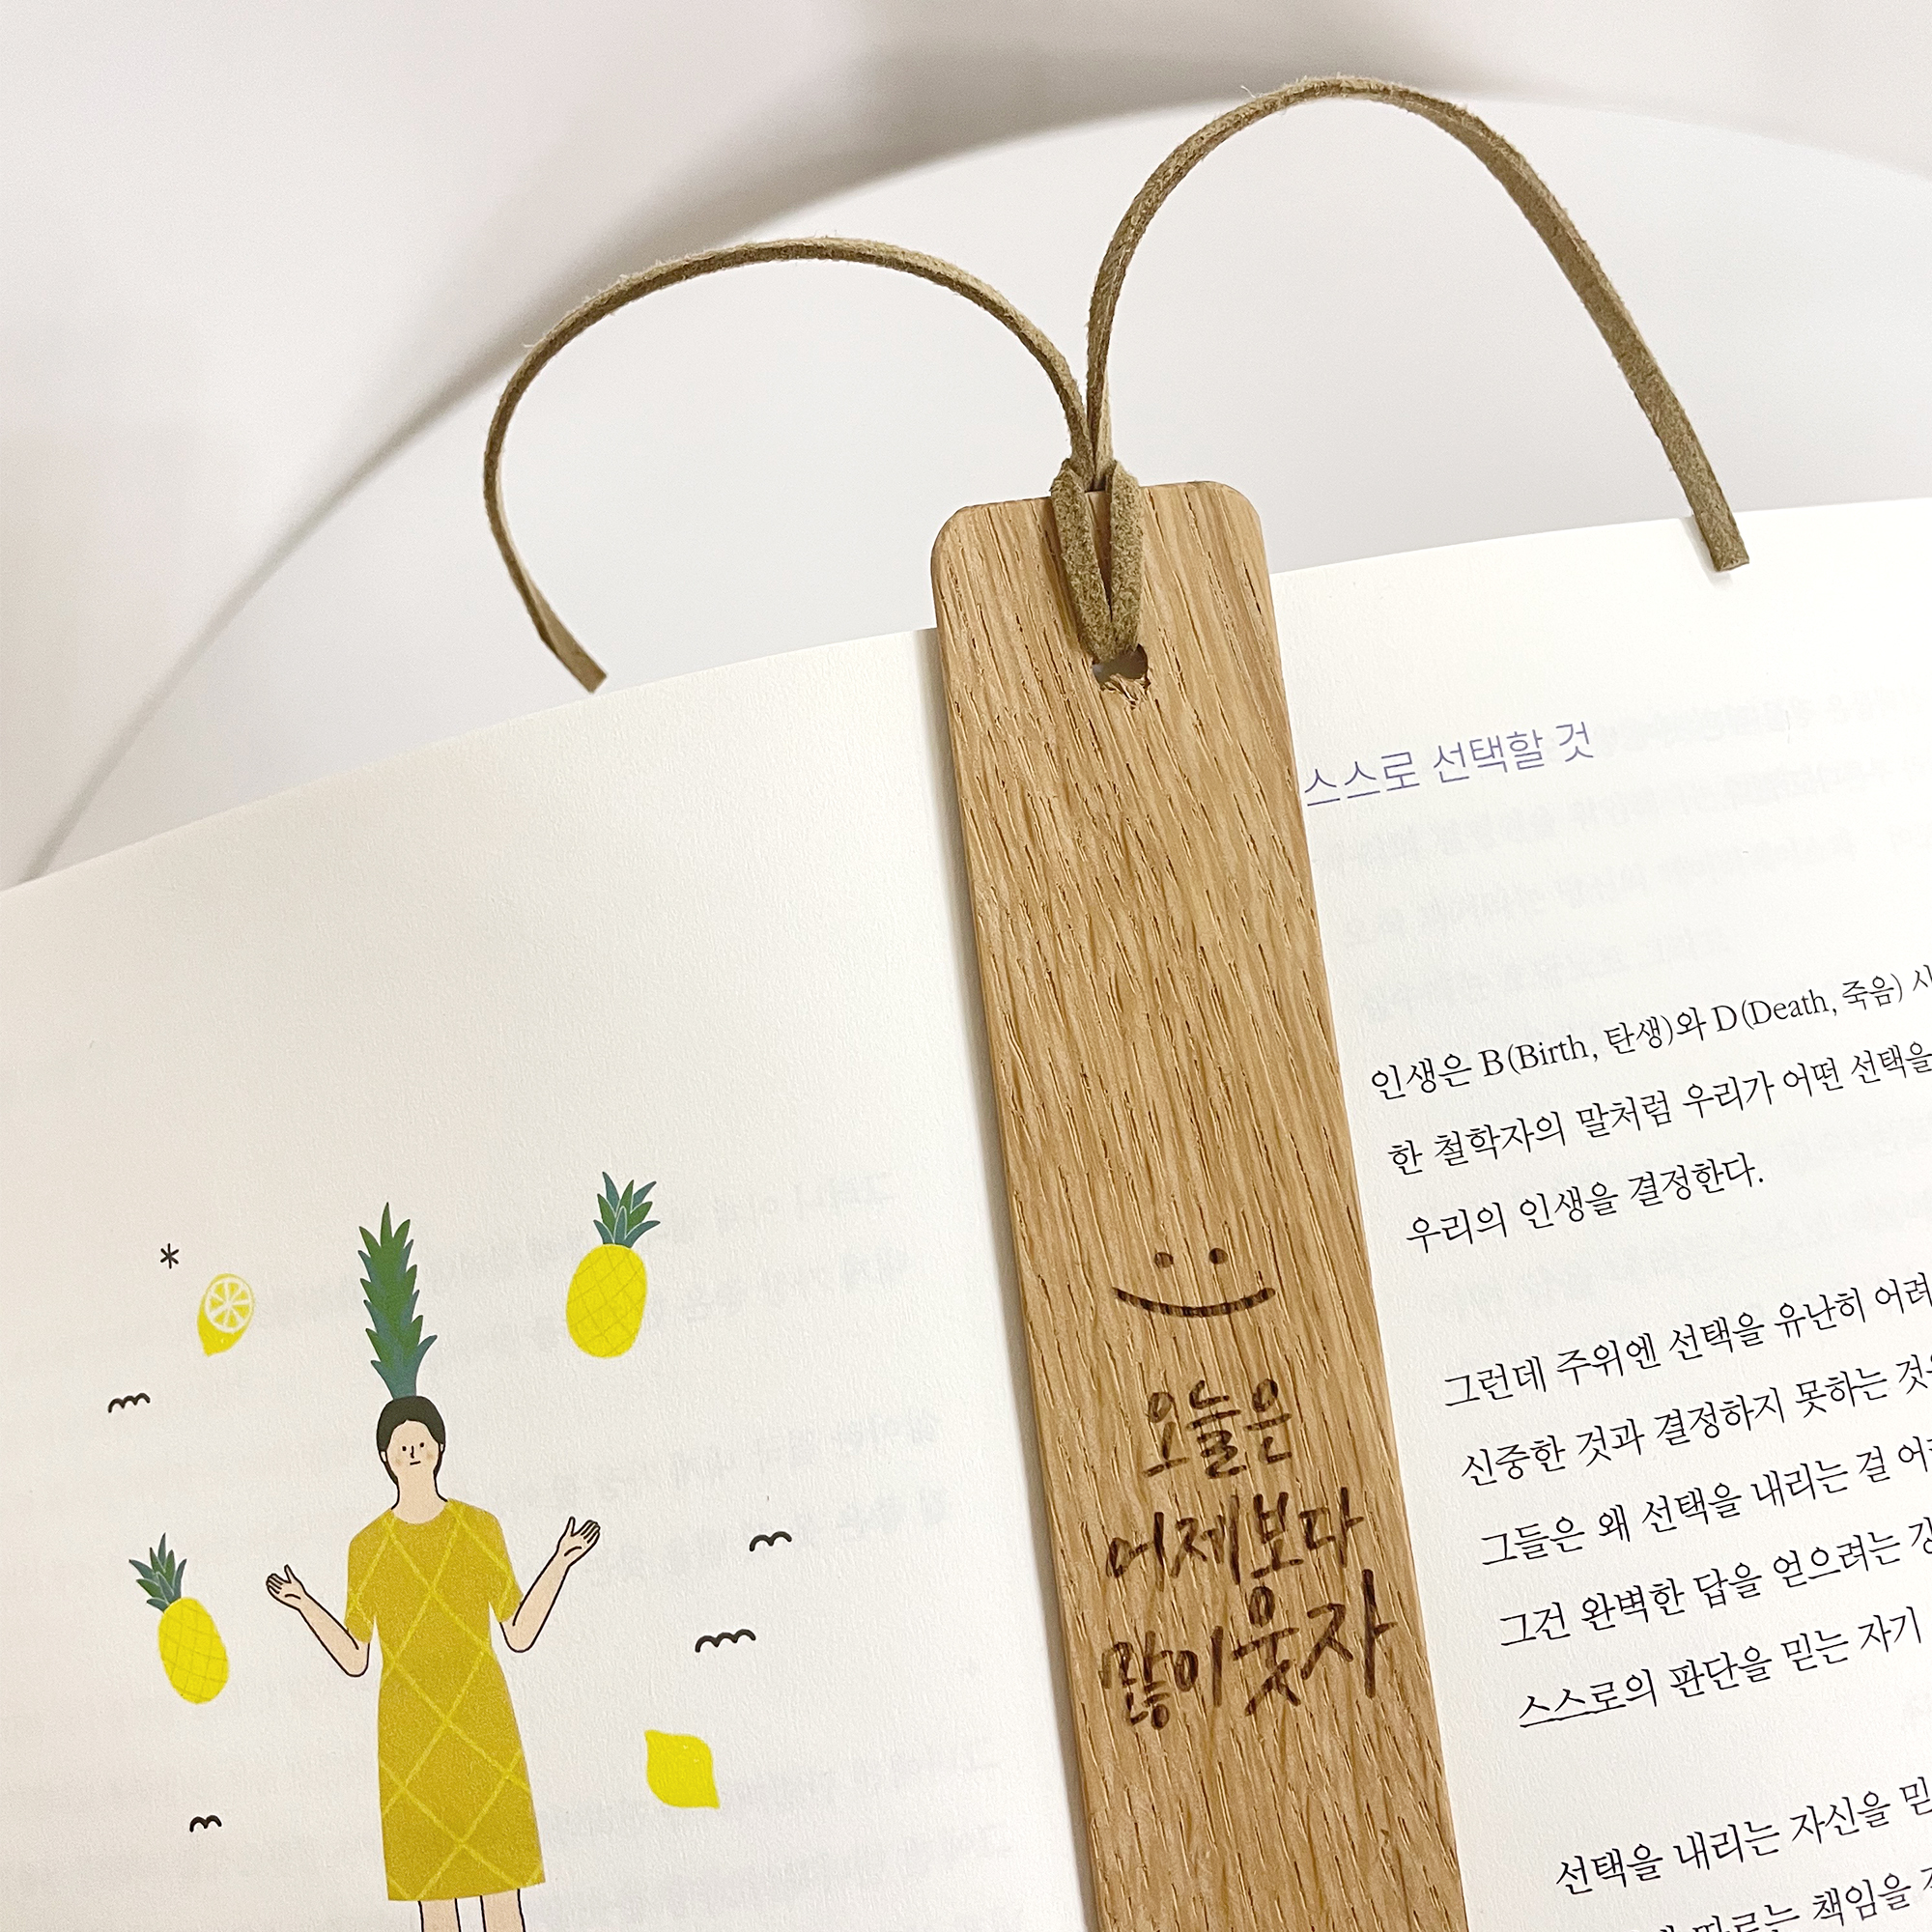 오늘은
어제보다
많이 웃자
스스로 선택할 것
인생은 B(Birth, 탄생)와 D(Death, 죽음)
한 철학자의 말처럼 우리가 어떤 선택을
우리의 인생을 결정한다.
그런데 주위엔 선택을 유난히 어려
신중한 것과 결정하지 못하는
그들은 왜 선택을 내리는 걸
그건 완벽한 답을 얻으려는
스스로의 판단을 믿는 자기
선택을 내리는 자신을
따르는 책임을